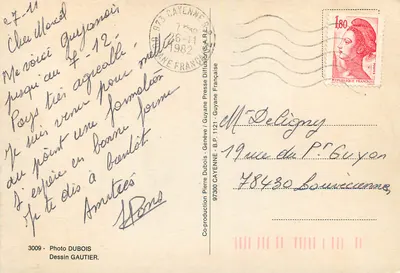 27-11
Cher Marcel
Me voici guyanais
jusqu'au 7-12-
Pays très agréable.
Je suis venu pour mettre
au point une formation
J'espère en bonne forme
Je te dis à bientôt
Amitiés
3009 - Photo DUBOIS
Dessin GAUTIER.
Co-production Pierre Dubois - Genève / Guyane Presse Diffusion S.A.R.L.
97300 CAYENNE - B.P. 1121 - Guyane Française
973 CAYENNE
1982
GUYANE FRANÇAISE
1,80
Mr Deligny
19 rue du Pr Guyon
78430 Louveciennes